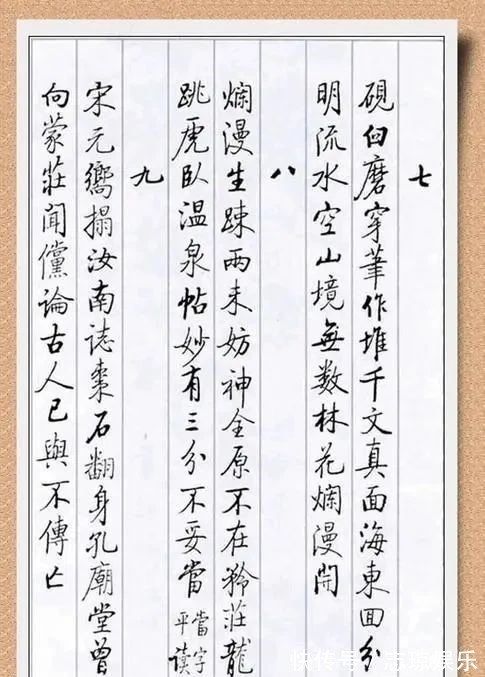 七
硯臼磨穿筆作堆千文真面海東囬分
明流水空山境無數林花爛漫開
八
爛漫生踈兩未妨神全原不在矜莊龍
跳虎臥温泉帖妙有三分不妥當 當字
平读
九
宋元嚮搨汝南誌棗石翻身孔廟堂曾
向蒙莊聞儻論古人已與不傳亾
快传号/志琼娱乐